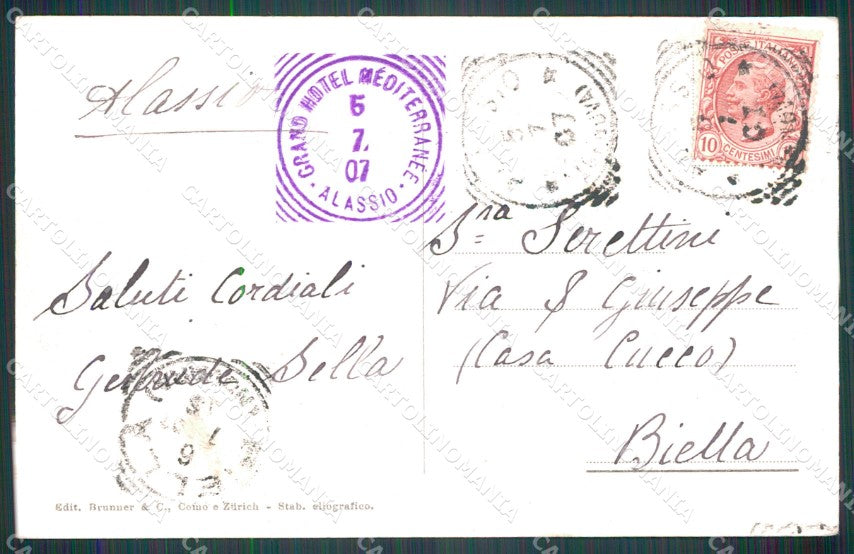 Alassio
GRAND HOTEL MÉDITERRANÉE
5
7.
07
ALASSIO
POSTE ITALIANE
10
CENTESIMI
Sra Serettini
Via S Giuseppe
(Casa Cucco)
Biella
Saluti Cordiali
Sella
Edit. Brunner & C., Como e Zürich - Stab. eliografico.
CARTOLINOMANIA